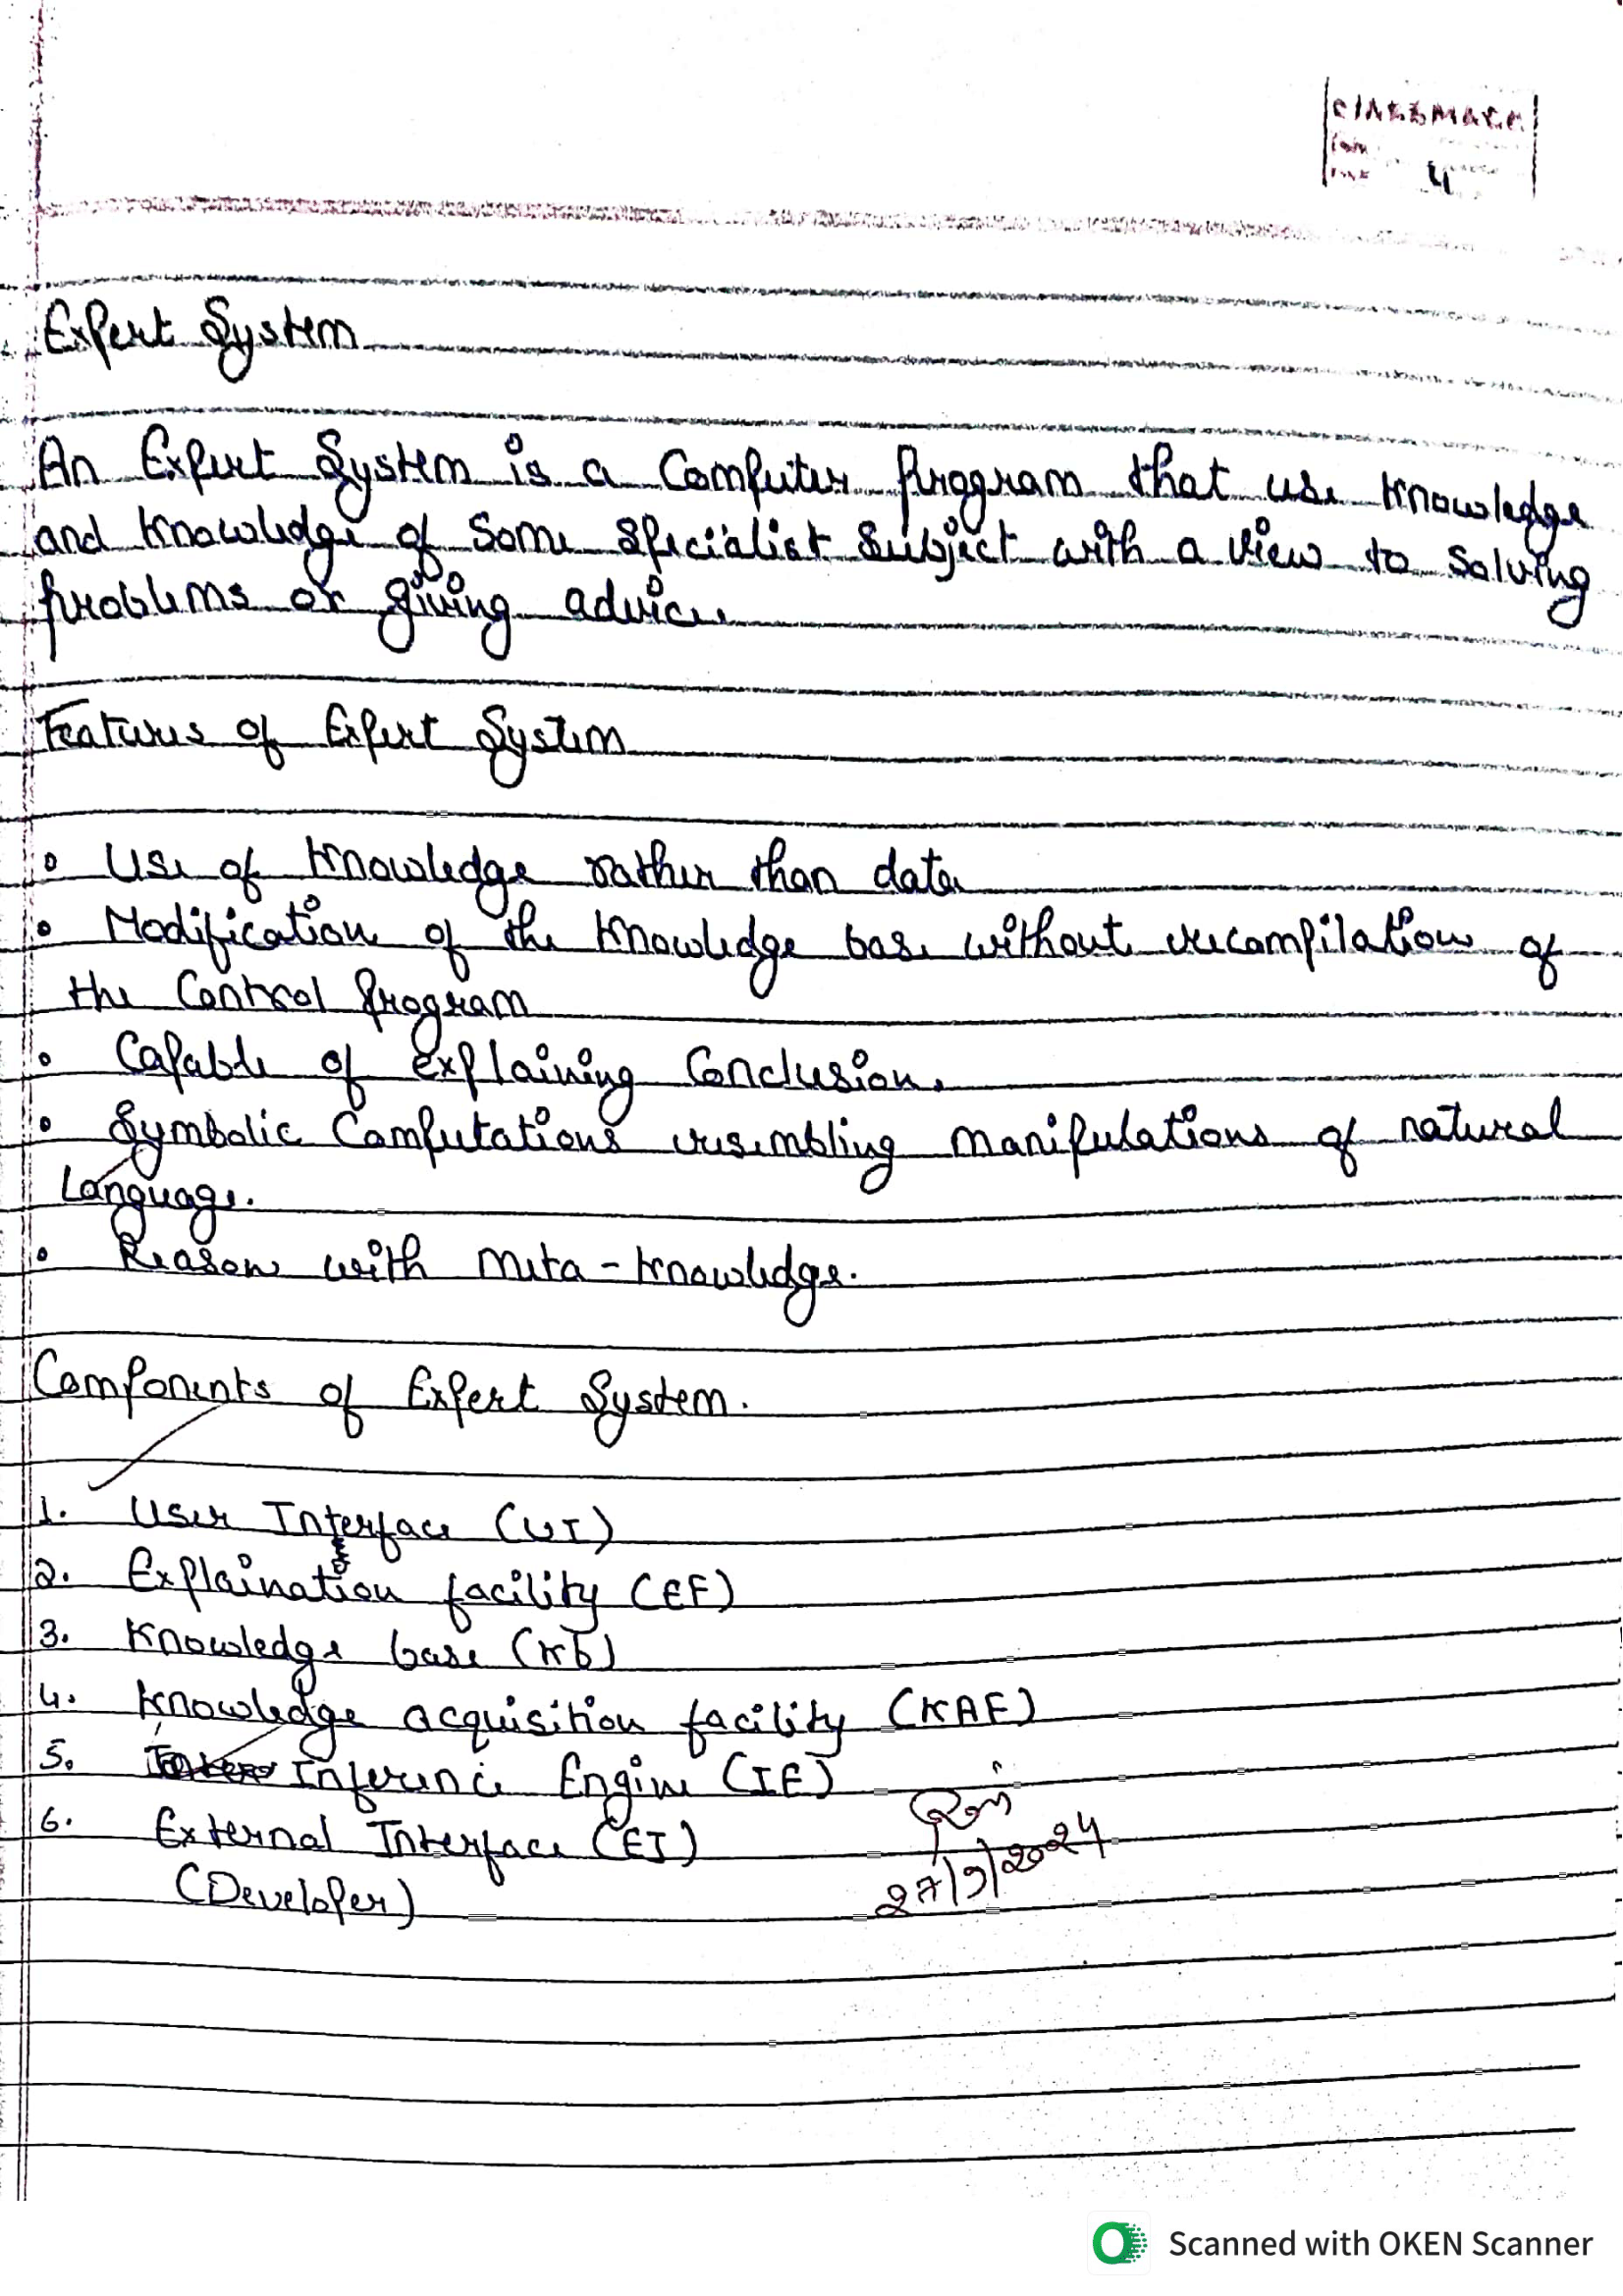 classmate
4
Expert System
An Expert System is a Computer program that use knowledge
and knowledge of some specialist subject with a view to solving
problems or giving advice
Features of Expert System
• Use of knowledge rather than data
• Modification of the knowledge base without recompilation of
the Control program
• Capable of explaining Conclusion.
• Symbolic Computations resembling manipulations of natural
Language.
• Reason with meta-knowledge.
Components of Expert System.
1. User Interface (UI)
2. Explaination facility (EF)
3. Knowledge base (Kb)
4. Knowledge acquisition facility (KAF)
5. Inference Engine (IE)
6. External Interface (EI)
(Developer)
27/9/2024
Scanned with OKEN Scanner